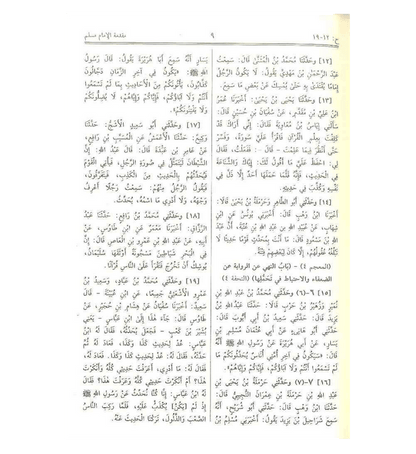 ح: ١٢-١٩
٩
مقدمة الإمام مسلم
[١٢] وَحَدَّثَنَا مُحَمَّدُ بْنُ الْمُثَنَّى قَالَ: سَمِعْتُ
عَبْدَ الرَّحْمَنِ بْنَ مَهْدِيٍّ يَقُولُ: لَا يَكُونُ الرَّجُلُ
إِمَامًا يُقْتَدَى بِهِ حَتَّى يُمْسِكَ عَنْ بَعْضِ مَا سَمِعَ.
[١٣] وَحَدَّثَنَا يَحْيَى بْنُ يَحْيَى: أَخْبَرَنَا عُمَرُ
ابْنُ عَلِيِّ بْنِ مُقَدَّمٍ، عَنْ سُفْيَانَ بْنِ حُسَيْنٍ قَالَ:
سَأَلَنِي إِيَاسُ بْنُ مُعَاوِيَةَ فَقَالَ: إِنِّي أَرَاكَ قَدْ
كَلِفْتَ بِعِلْمِ الْقُرْآنِ، فَاقْرَأْ عَلَيَّ سُورَةً، وَفَسِّرْ
حَتَّى أَنْظُرَ فِيمَا عَلِمْتَ. قَالَ: فَفَعَلْتُ، فَقَالَ
لِيَ: احْفَظْ عَلَيَّ مَا أَقُولُ لَكَ، إِيَّاكَ وَالشَّنَاعَةَ
فِي الْحَدِيثِ، فَإِنَّهُ قَلَّمَا حَمَلَهَا أَحَدٌ إِلَّا ذَلَّ فِي
نَفْسِهِ وَكُذِّبَ فِي حَدِيثِهِ.
[١٤] وَحَدَّثَنِي أَبُو الطَّاهِرِ وَحَرْمَلَةُ بْنُ يَحْيَى قَالَا:
أَخْبَرَنَا ابْنُ وَهْبٍ قَالَ: أَخْبَرَنِي يُونُسُ عَنِ ابْنِ
شِهَابٍ، عَنْ عُبَيْدِ اللهِ بْنِ عَبْدِ اللهِ بْنِ عُتْبَةَ، أَنَّ عَبْدَ
اللهِ بْنَ مَسْعُودٍ قَالَ: مَا أَنْتَ بِمُحَدِّثٍ قَوْمًا حَدِيثًا لَا
تَبْلُغُهُ عُقُولُهُمْ، إِلَّا كَانَ لِبَعْضِهِمْ فِتْنَةً.
(المعجم ٤) - (بَابُ النهي عن الرواية عن
الضعفاء والاحتياط في تحملها) (التحفة ٤)
[١٥] ٦-(٦) وَحَدَّثَنِي مُحَمَّدُ بْنُ عَبْدِ اللهِ بْنِ
نُمَيْرٍ وَزُهَيْرُ بْنُ حَرْبٍ قَالَا: حَدَّثَنَا عَبْدُ اللهِ بْنُ
يَزِيدَ قَالَ: حَدَّثَنِي سَعِيدُ بْنُ أَبِي أَيُّوبَ قَالَ:
حَدَّثَنِي أَبُو هَانِئٍ عَنْ أَبِي عُثْمَانَ مُسْلِمِ بْنِ
يَسَارٍ، عَنْ أَبِي هُرَيْرَةَ عَنْ رَسُولِ اللهِ ﷺ أَنَّهُ
قَالَ: «سَيَكُونُ فِي آخِرِ أُمَّتِي أُنَاسٌ يُحَدِّثُونَكُمْ مَا
لَمْ تَسْمَعُوا أَنْتُمْ وَلَا آبَاؤُكُمْ، فَإِيَّاكُمْ وَإِيَّاهُمْ».
[١٦] ٧-(٧) وَحَدَّثَنِي حَرْمَلَةُ بْنُ يَحْيَى بْنِ
عَبْدِ اللهِ بْنِ حَرْمَلَةَ بْنِ عِمْرَانَ التُّجِيبِيُّ قَالَ:
حَدَّثَنَا ابْنُ وَهْبٍ قَالَ: حَدَّثَنِي أَبُو شُرَيْحٍ، أَنَّهُ
سَمِعَ شَرَاحِيلَ بْنَ يَزِيدَ يَقُولُ: أَخْبَرَنِي مُسْلِمُ بْنُ
يَسَارٍ أَنَّهُ سَمِعَ أَبَا هُرَيْرَةَ يَقُولُ: قَالَ رَسُولُ
اللهِ ﷺ: «يَكُونُ فِي آخِرِ الزَّمَانِ دَجَّالُونَ
كَذَّابُونَ، يَأْتُونَكُمْ مِنَ الْأَحَادِيثِ بِمَا لَمْ تَسْمَعُوا
أَنْتُمْ وَلَا آبَاؤُكُمْ، فَإِيَّاكُمْ وَإِيَّاهُمْ، لَا يُضِلُّونَكُمْ
وَلَا يَفْتِنُونَكُمْ».
[١٧] وَحَدَّثَنِي أَبُو سَعِيدٍ الْأَشَجُّ: حَدَّثَنَا
وَكِيعٌ: حَدَّثَنَا الْأَعْمَشُ عَنِ الْمُسَيَّبِ بْنِ رَافِعٍ،
عَنْ عَامِرِ بْنِ عَبَدَةَ قَالَ: قَالَ عَبْدُ اللهِ: إِنَّ
الشَّيْطَانَ لَيَتَمَثَّلُ فِي صُورَةِ الرَّجُلِ، فَيَأْتِي الْقَوْمَ
فَيُحَدِّثُهُمْ بِالْحَدِيثِ مِنَ الْكَذِبِ، فَيَتَفَرَّقُونَ،
فَيَقُولُ الرَّجُلُ مِنْهُمْ: سَمِعْتُ رَجُلًا أَعْرِفُ
وَجْهَهُ، وَلَا أَدْرِي مَا اسْمُهُ، يُحَدِّثُ.
[١٨] وَحَدَّثَنِي مُحَمَّدُ بْنُ رَافِعٍ: حَدَّثَنَا عَبْدُ
الرَّزَّاقِ: أَخْبَرَنَا مَعْمَرٌ عَنِ ابْنِ طَاوُسٍ، عَنْ
أَبِيهِ، عَنْ عَبْدِ اللهِ بْنِ عَمْرِو بْنِ الْعَاصِ قَالَ: إِنَّ
فِي الْبَحْرِ شَيَاطِينَ مَسْجُونَةً أَوْثَقَهَا سُلَيْمَانُ،
يُوشِكُ أَنْ تَخْرُجَ فَتَقْرَأَ عَلَى النَّاسِ قُرْآنًا.
[١٩] وَحَدَّثَنِي مُحَمَّدُ بْنُ عَبَّادٍ، وَسَعِيدُ بْنُ
عَمْرٍو الْأَشْعَثِيُّ جَمِيعًا، عَنِ ابْنِ عُيَيْنَةَ - قَالَ
سَعِيدٌ: أَخْبَرَنَا سُفْيَانُ - عَنْ هِشَامِ بْنِ حُجَيْرٍ، عَنْ
طَاوُسٍ قَالَ: جَاءَ هَذَا إِلَى ابْنِ عَبَّاسٍ - يَعْنِي
بُشَيْرَ بْنَ كَعْبٍ - فَجَعَلَ يُحَدِّثُهُ، فَقَالَ لَهُ ابْنُ
عَبَّاسٍ: عُدْ لِحَدِيثِ كَذَا وَكَذَا، فَعَادَ لَهُ، ثُمَّ
حَدَّثَهُ، فَقَالَ لَهُ: عُدْ لِحَدِيثِ كَذَا وَكَذَا، فَعَادَ لَهُ،
فَقَالَ لَهُ: مَا أَدْرِي، أَعَرَفْتَ حَدِيثِي كُلَّهُ وَأَنْكَرْتَ
هَذَا؟ أَمْ أَنْكَرْتَ حَدِيثِي كُلَّهُ وَعَرَفْتَ هَذَا؟ فَقَالَ
لَهُ ابْنُ عَبَّاسٍ: إِنَّا كُنَّا نُحَدِّثُ عَنْ رَسُولِ اللهِ ﷺ
إِذْ لَمْ [يَكُنْ] يُكْذَبُ عَلَيْهِ، فَلَمَّا رَكِبَ النَّاسُ
الصَّعْبَ وَالذَّلُولَ، تَرَكْنَا الْحَدِيثَ عَنْهُ.